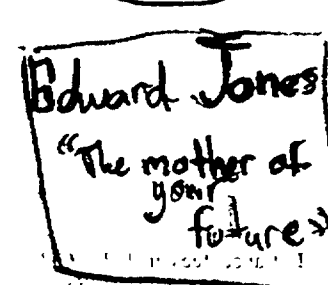 Edward Jones
"The mother of
your
future"